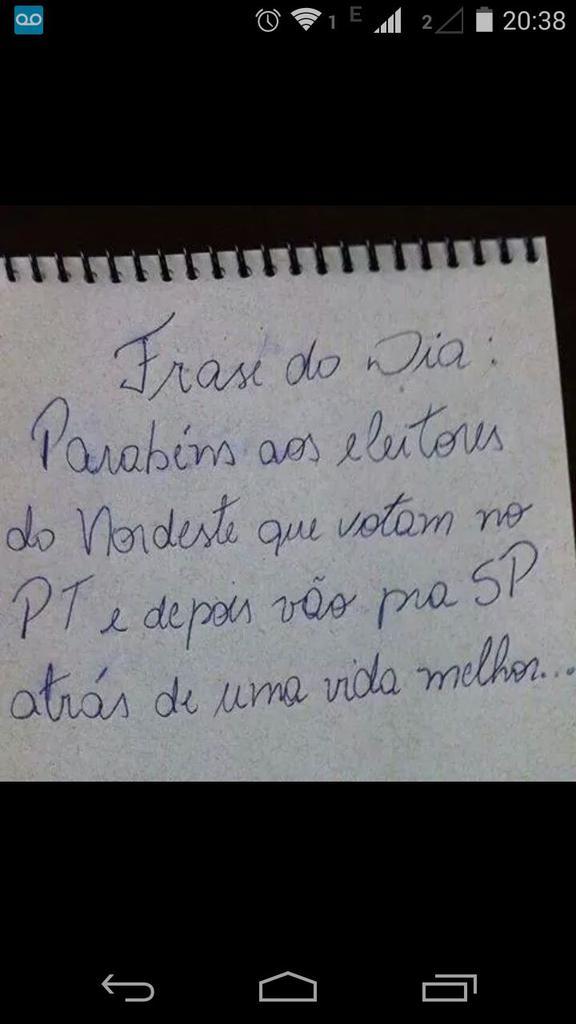 1 E 2 20:38
Frase do Dia:
Parabéns aos eleitores
do Nordeste que votam no
PT e depois vão pra SP
atrás de uma vida melhor...